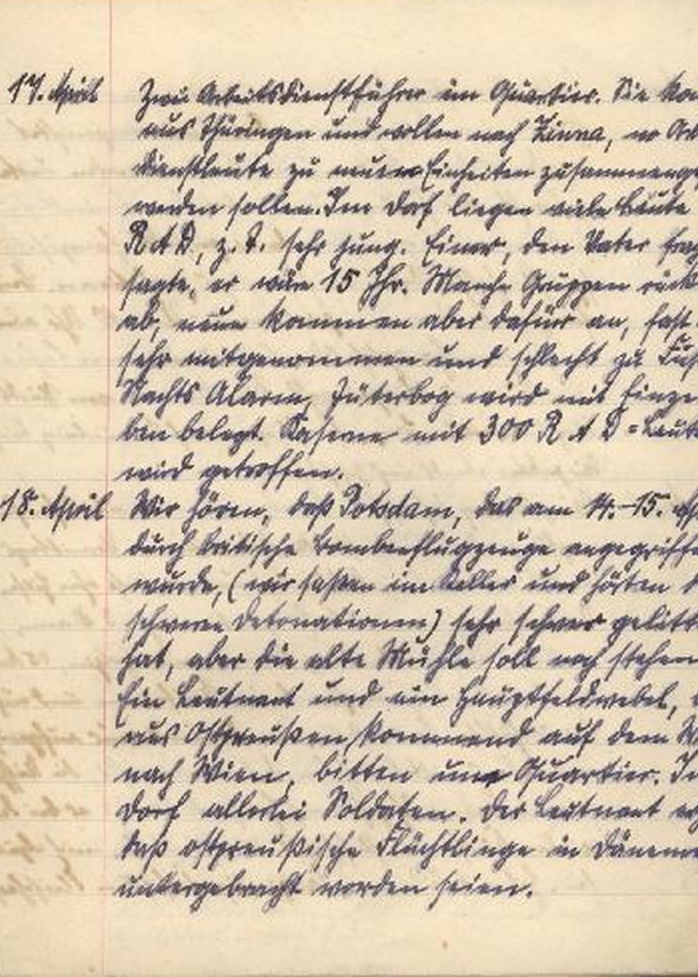 17. April Zwei Arbeitsdienstführer im Quartier. Sie ko
aus Thüringen und wollen nach Zinna, wo Ar
dienstleute zu neuen Einheiten zusammenge
werden sollen. Im Dorf liegen viele Leute
R A D, z. T. sehr jung. Einer, den Vater frag
sagte, er wäre 15 Jhr. Manche Gruppen rück
ab, neue kommen aber dafür an, fast
sehr mitgenommen und schlecht zu Fuß
Nachts Alarm, Jüterbog wird mit Einze
ben belegt. Kaserne mit 300 R A D=Leut
wird getroffen.
18. April Wir hören, daß Potsdam, das am 14.-15.
durch britische Bombenflugzeuge angegriffe
wurde, (wir saßen im Keller und hörten
schweren Detonationen) sehr schwer gelitt
hat, aber die alte Mühle soll noch stehen
Ein Leutnant und ein Hauptfeldwebel,
aus Ostpreußen kommend auf dem W
nach Wien, bitten um Quartier. Im
Dorf allerlei Soldaten. Der Leutnant
daß ostpreußische Flüchtlinge in Dänem
untergebracht worden seien.